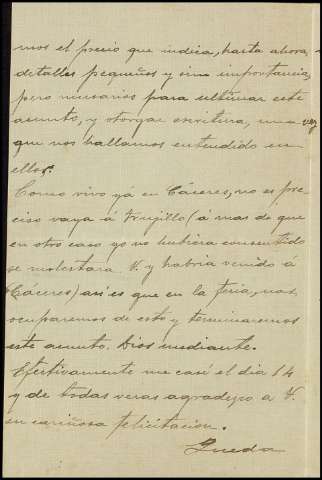 mos el precio que indica, hasta ahora,
detalles pequeños y sin importancia,
pero necesarios para ultimar este
asunto, y otorgar escritura, una vez
que nos hallamos entendido en
ellos.
Como vivo yá en Cáceres, no es pre
ciso vaya á Trujillo (á mas de que
en otro caso yo no hubiera consentido
se molestara V. y habria venido á
Cáceres) asi es que en la feria, nos
ocuparemos de esto y terminaremos
este asunto. Dios mediante.
Efectivamente me casé el dia 14
y de todas veras agradezco a V.
su cariñosa felicitacion.
Queda